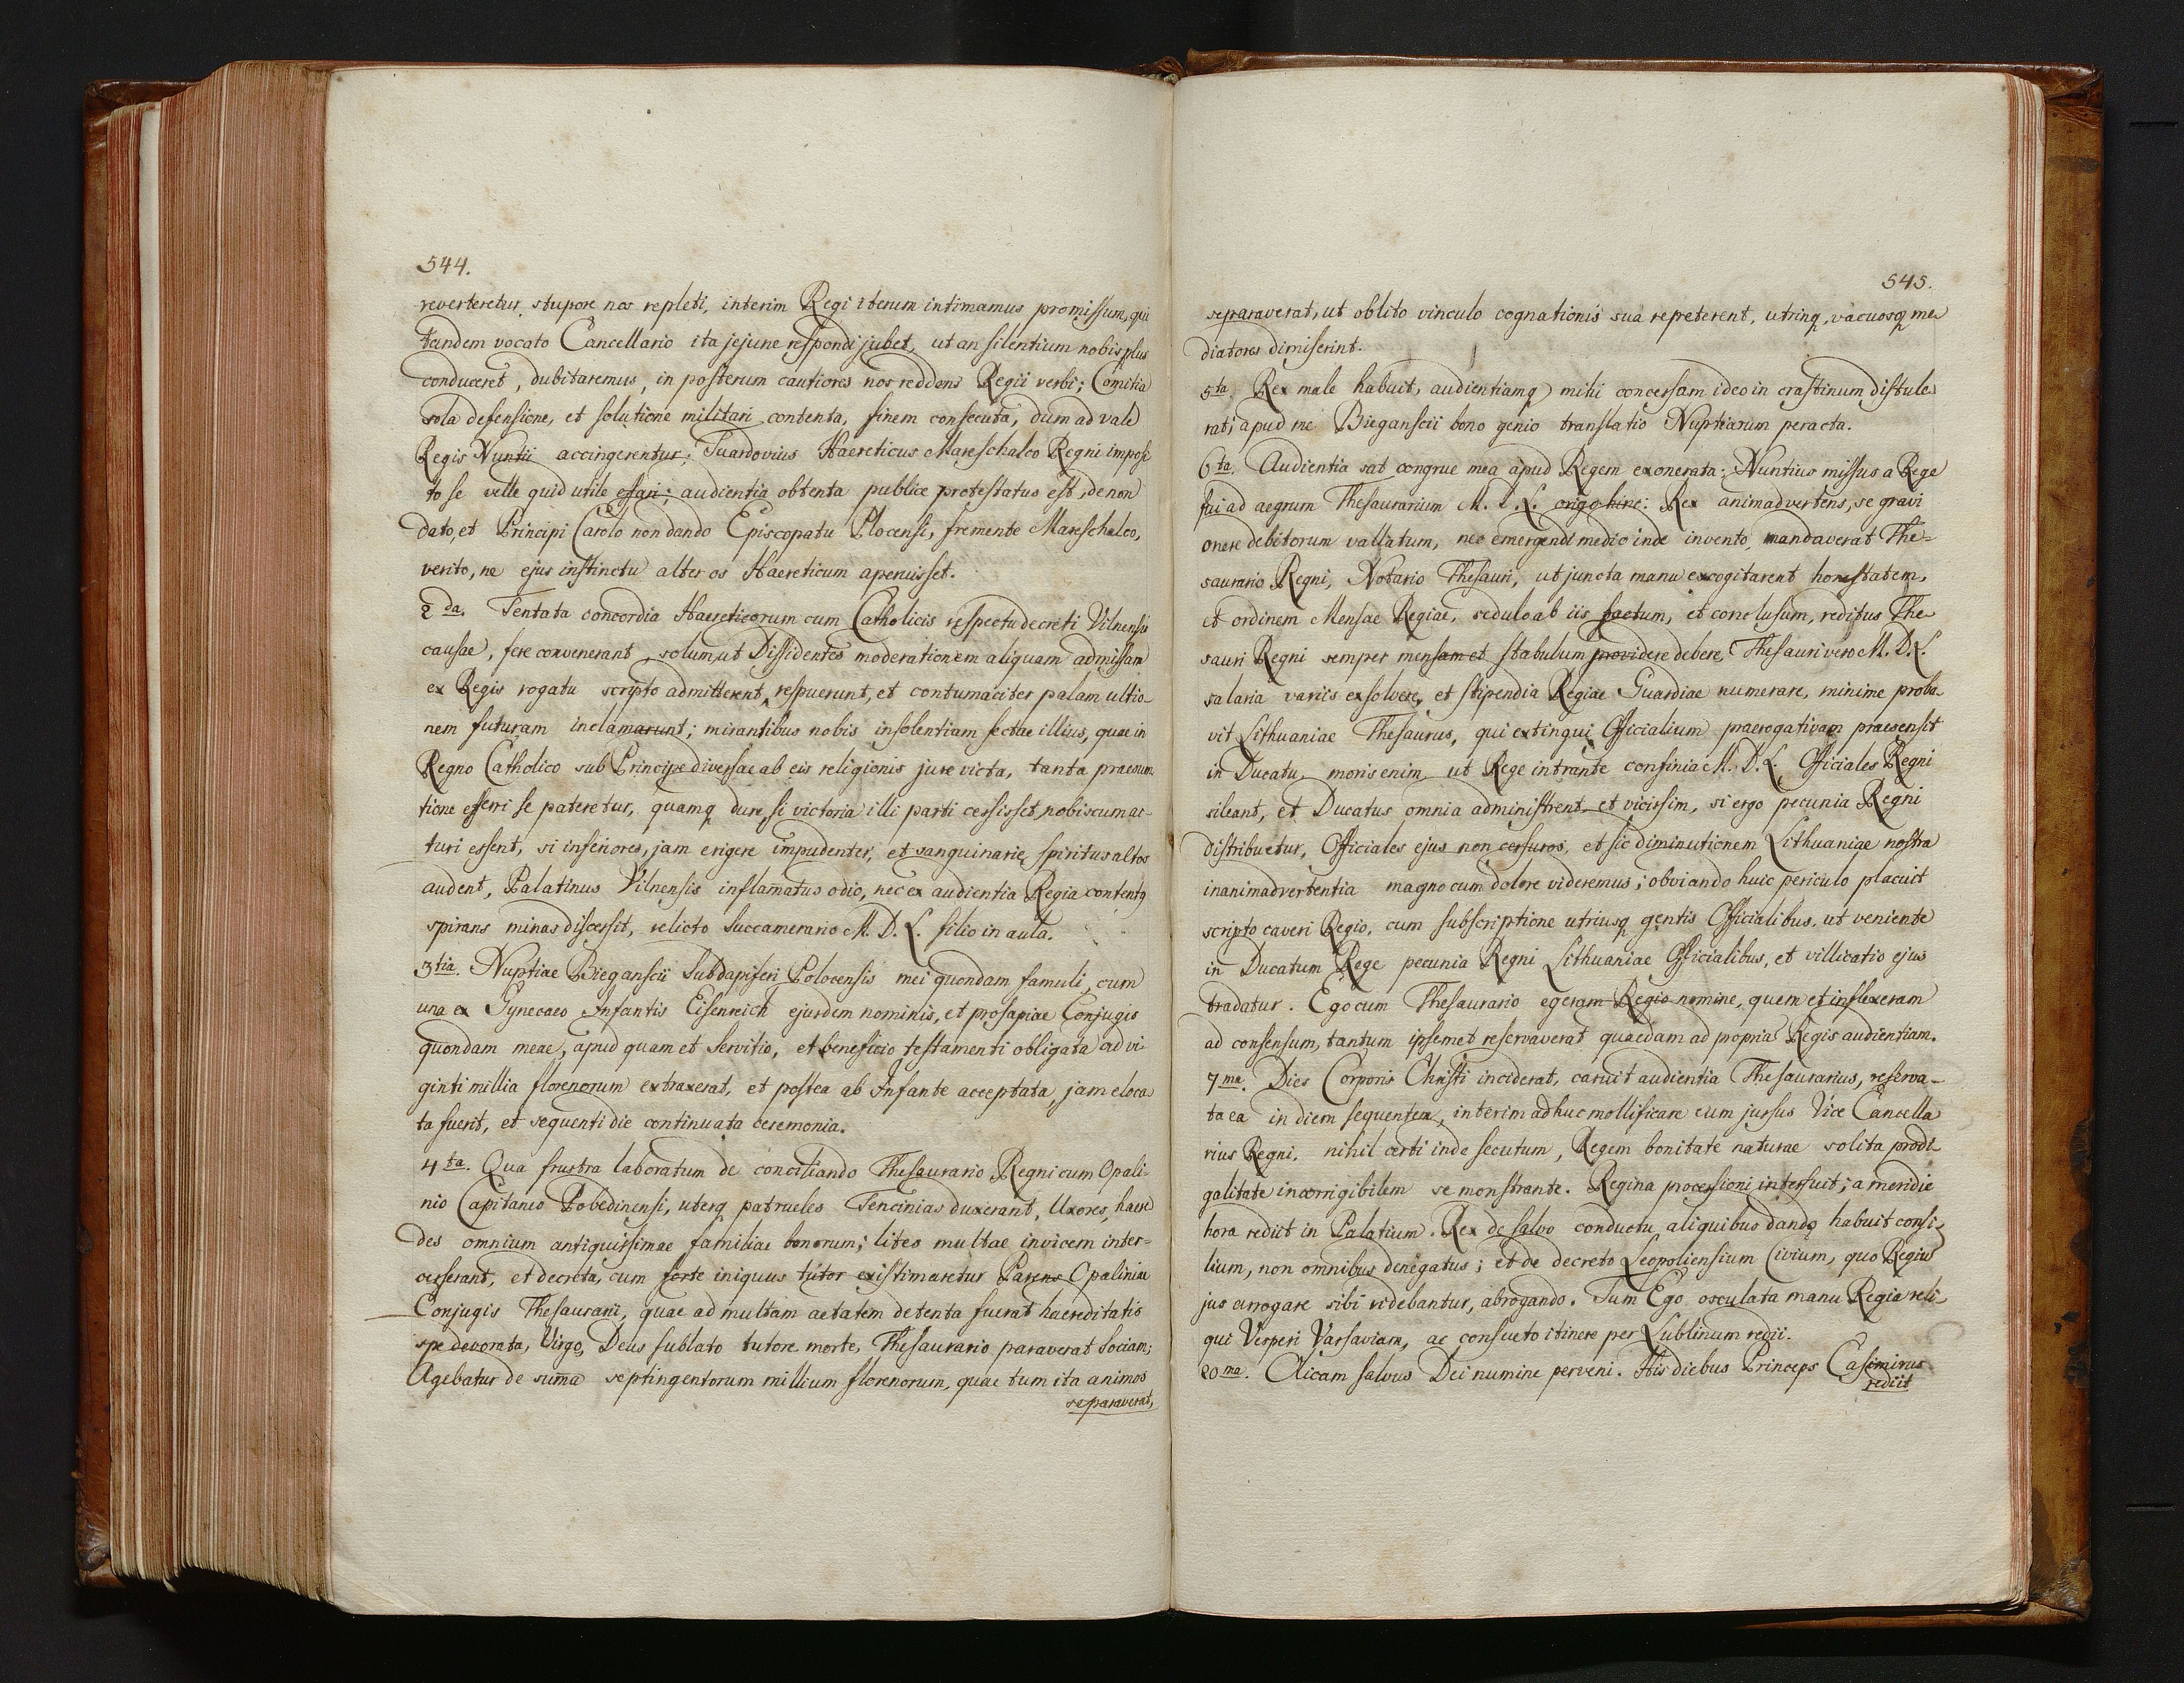 544.
reverteretur, stupore nos repleti, interim Regi iterum intimamus promissum, qui
tandem vocato Cancellario ita jejune respondi jubet, ut an silentium nobis plus
conduceret, dubitaremus, in posterum cautiores nos reddens Regii verbi; Comitia
sola defensione, et solutione militari contenta, finem consecuta, dum ad vale
Regis Nuntii accingerentur; Tuardovius Haereticus Mareschalco Regni impose
to se velle quid utile effari; audientia obtenta publice protestatus est, de non
dato, et Principi Carolo non dando Episcopatu Plocensi, fremente Mareschalco,
verito, ne ejus instinctu alter os Haereticum aperuisset.
2da. Tentata concordia Haereticorum cum Catholicis respectu decreti Vilnensis
causae, fere convenerant, solum, ut Dissidentes moderationem aliquam admissam
ex Regis rogatu scripto admitterent, respuerunt, et contumaciter palam ultio-
nem futuram inclamarunt; mirantibus nobis insolentiam sectae illius, quae in
Regno Catholico sub Principe diversae ab eis religionis jure victa, tanta praesum
tione efferri se pateretur, quamq dure, si victoria illi parti cessisset, nobiscum ac-
turi essent, si inferiores, jam erigere impudenter, et sanguinarie, spiritus altos
audent, Palatinus Vilnensis inflamatus odio, nec ex audientia Regia contentq
spirans minas discessit, relicto Succamerario M. D. L. filio in aula.
3tia. Nuptiae Bieganscii Subdapiferi Polocensis mei quondam famuli, cum
una ex Gynecaeo Infantis Eisenreich ejusdem nominis, et prosapiae Conjugis
quondam meae, apud quam et servitio, et beneficio testamenti obligata ad vi-
ginti millia florenorum extraxerat, et postea ab Infante acceptata, jam eloca
ta fuerit, et sequenti die continuata ceremonia.
4ta. Qua frustra laboratum de conciliando Thesaurario Regni cum Opali-
nio Capitaneo Pobedinensi, uterq patrueles Tencinias duxerant, Uxores, haere
des omnium antiquissimae familiae bonorum; lites multae invicem inter-
cesserant, et decreta, cum forte iniquus tutor existimaretur Parens Opaliniae
Conjugis Thesaurarii, quae ad multam aetatem detenta fuerat haereditatis
spe devorata, Virgo, Deus sublato tutore morte, Thesaurario paraverat Sociam;
Agebatur de suma septingentorum millium florenorum, quae tum ita animos
separaverat,
545.
separaverat, ut oblito vinculo cognationis sua repeterent, utrinq, vacuosq me
diatores dimiserint.
5ta. Rex male habuit, audientiamq mihi concessam ideo in crastinum distule
rat; apud me Bieganscii bono genio translatio Nuptiarum peracta.
6ta. Audientia sat congrue mea apud Regem exonerata: Nuntius missus a Rege
fui ad aegrum Thesaurarium M. D. L. origo hinc: Rex animadvertens, se gravi
onere debitorum vallatum, nec emergendi medio inde invento, mandaverat The-
saurario Regni, Notario Thesauri, ut juncta manu excogitarent honestatem,
et ordinem Mensae Regiae, sedulo ab iis factum, et conclusum, reditus The
sauri Regni semper mensam et stabulum providere debere, Thesauri vero M. D. L.
salaria variis exsolvere, et stipendia Regiae Guardiae numerare, minime proba-
vit Lithuaniae Thesaurus, qui extingui Officialium praerogativam praesensit
in Ducatu, moris enim ut Rege intrante confinia M. D. L. Officiales Regni
sileant, et Ducatus omnia administrent, et vicissim, si ergo pecunia Regni
distribuetur, Officiales ejus non cessuros, et sic diminutionem Lithuaniae nostra
inanimadvertentia magno cum dolore videremus; obviando huic periculo placuit
scripto caveri Regio, cum subscriptione utriusq gentis Officialibus, ut veniente
in Ducatum Rege pecunia Regni Lithuaniae Officialibus, et villicatio ejus
tradatur. Ego cum Thesaurario egeram Regio nomine, quem et inflexeram
ad consensum, tantum ipsemet reservaverat quaedam ad propria Regis audientiam.
7ma. Dies Corporis Christi inciderat, caruit audientia Thesaurarius, reserva-
ta ea in diem sequentem, interim adhuc mollificare eum jussus Vice Cancella
rius Regni. nihil certi inde secutum, Regem bonitate naturae solita prodi-
galitate incorrigibilem se monstrante. Regina processioni interfuit; a meridie
hora rediit in Palatium. Rex de salvo conductu aliquibus dando habuit consi-
lium, non omnibus denegatus; et de decreto Leopoliensium Civium, quo Regius
jus arrogare sibi videbantur, abrogando. Tum Ego osculata manu Regia reli-
qui Vesperi Varsaviam, ac consueto itinere per Lublinum redii.
20ma. Olicam salvus Dei numine perveni. His diebus Princeps Casimirus
rediit